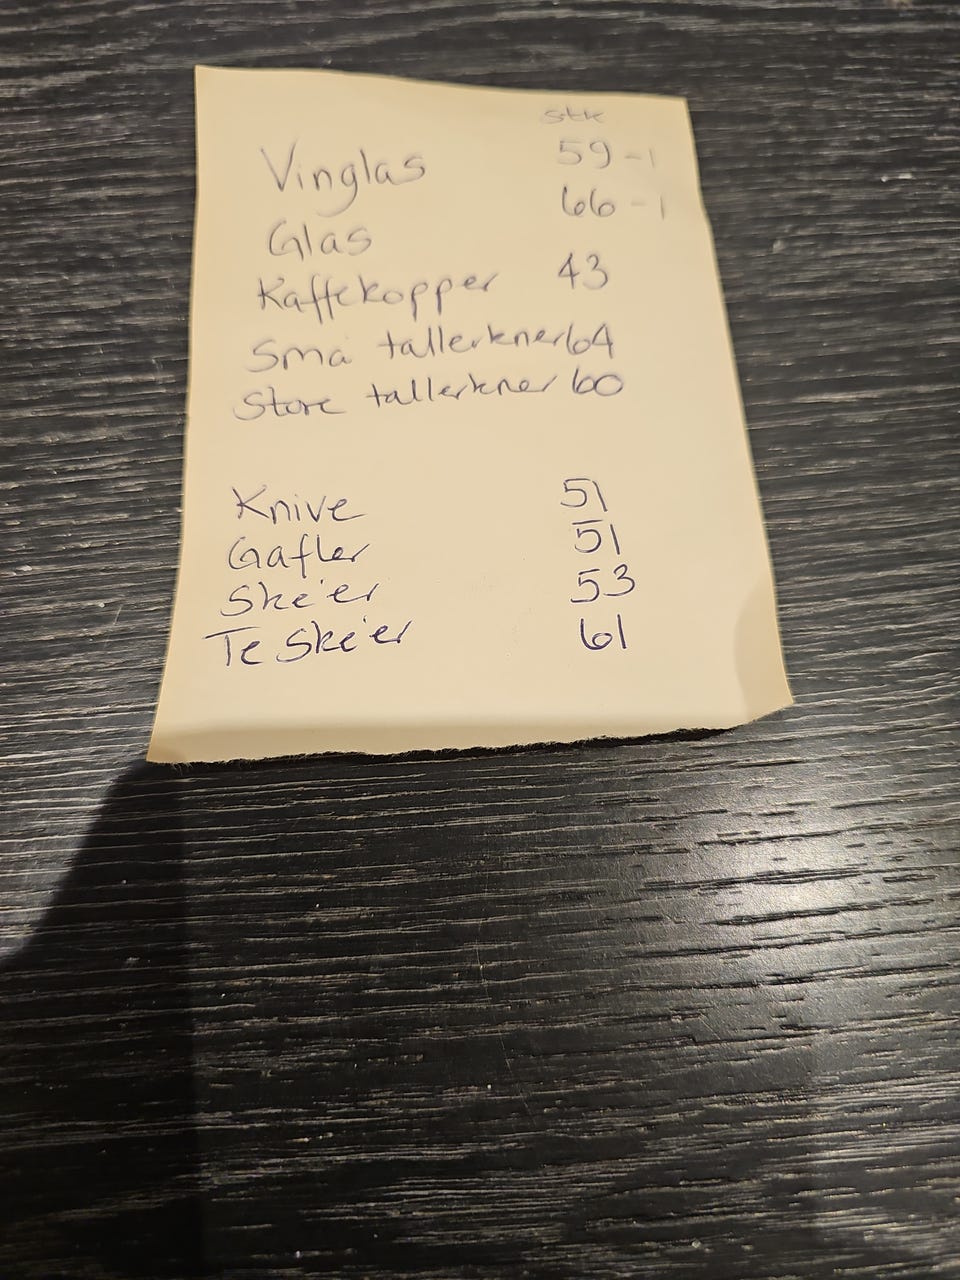 stk
Vinglas 59-1
Glas 66-1
Kaffekopper 43
Små tallerkner 64
Store tallerkner 60
Knive 51
Gafler 51
Ske'er 53
Te ske'er 61